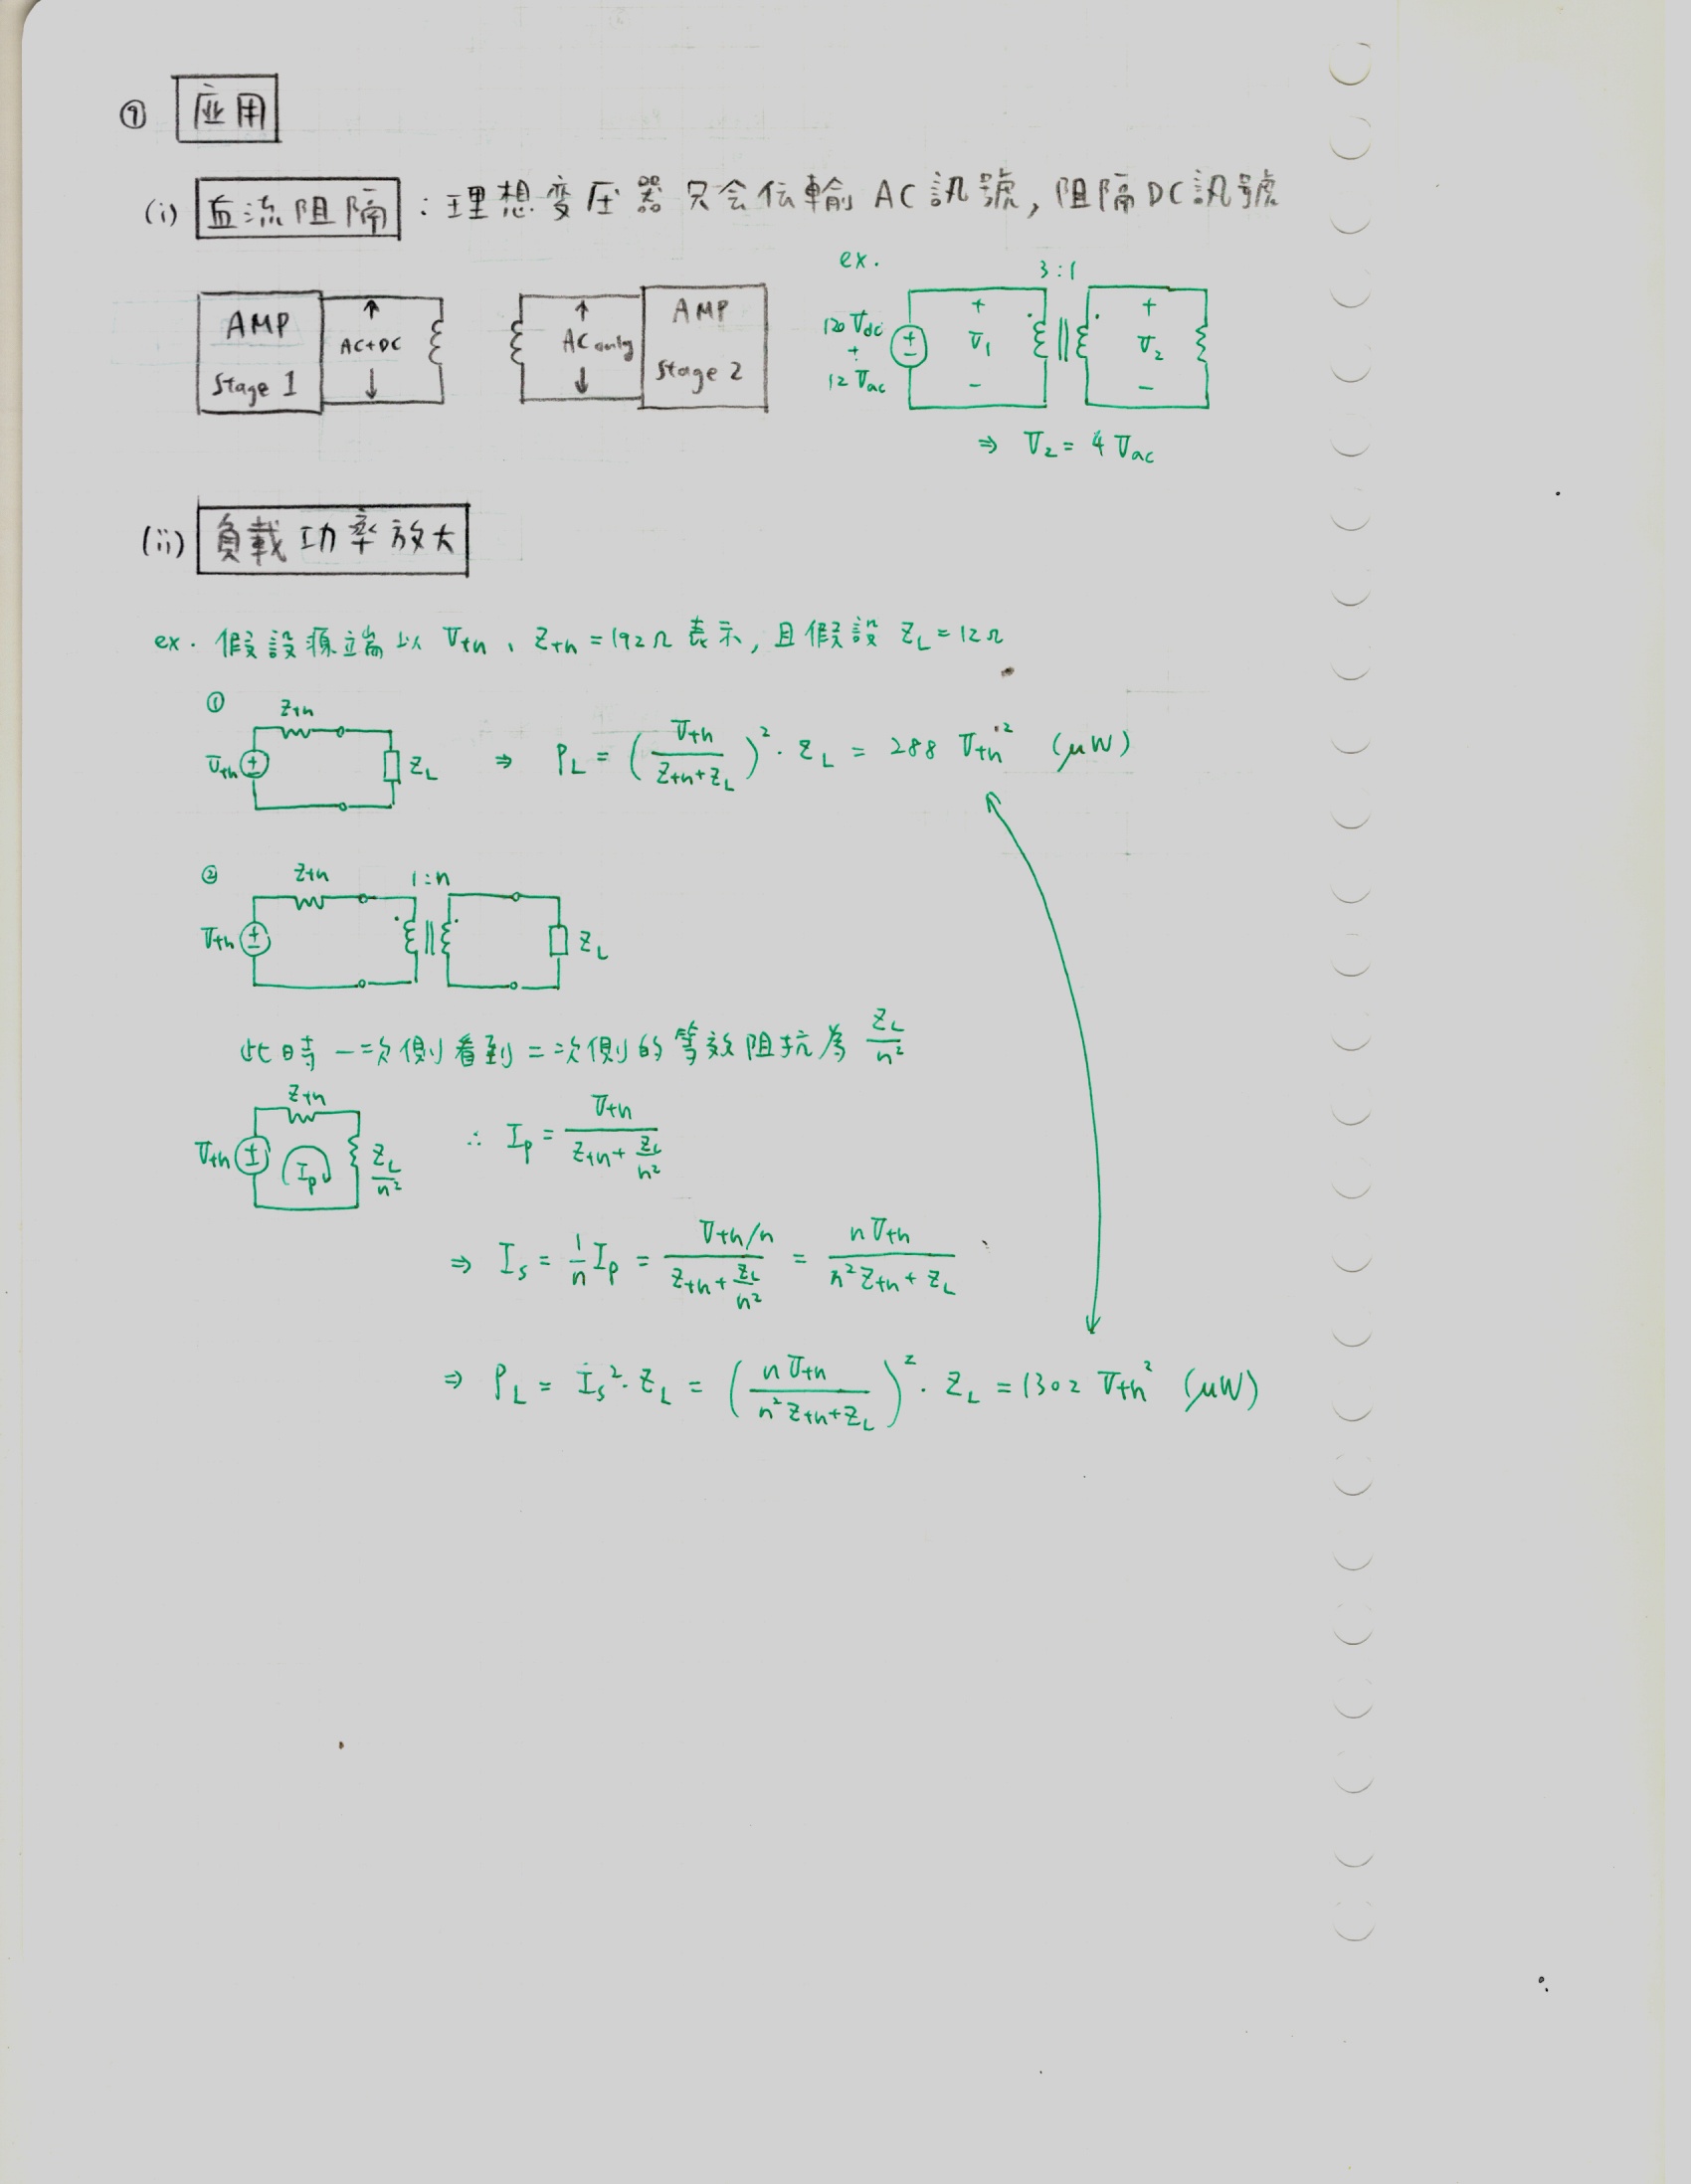 ⑨ 应用
(i) 直流阻隔 : 理想变压器只会伝輸 AC 訊號, 阻隔 DC 訊號
AMP
Stage 1
AC+DC
AC only
AMP
Stage 2
ex.
3:1
120 Vdc
+
12 Vac
+
V1
-
+
V2
-
⇒ V2 = 4 Vac
(ii) 負載功率放大
ex. 假設源端以 Vth、Zth = 192Ω 表示, 且假設 ZL = 12Ω
①
Zth
Vth
ZL
⇒ PL = (Vth / (Zth+ZL))² · ZL = 288 Vth² (μW)
②
Zth
1:n
Vth
ZL
此時一次側看到二次側的等效阻抗為 ZL/n²
Zth
Vth
Ip
ZL/n²
∴ Ip = Vth / (Zth + ZL/n²)
⇒ Is = 1/n Ip = (Vth/n) / (Zth + ZL/n²) = nVth / (n²Zth + ZL)
⇒ PL = Is² · ZL = (nVth / (n²Zth+ZL))² · ZL = 1302 Vth² (μW)